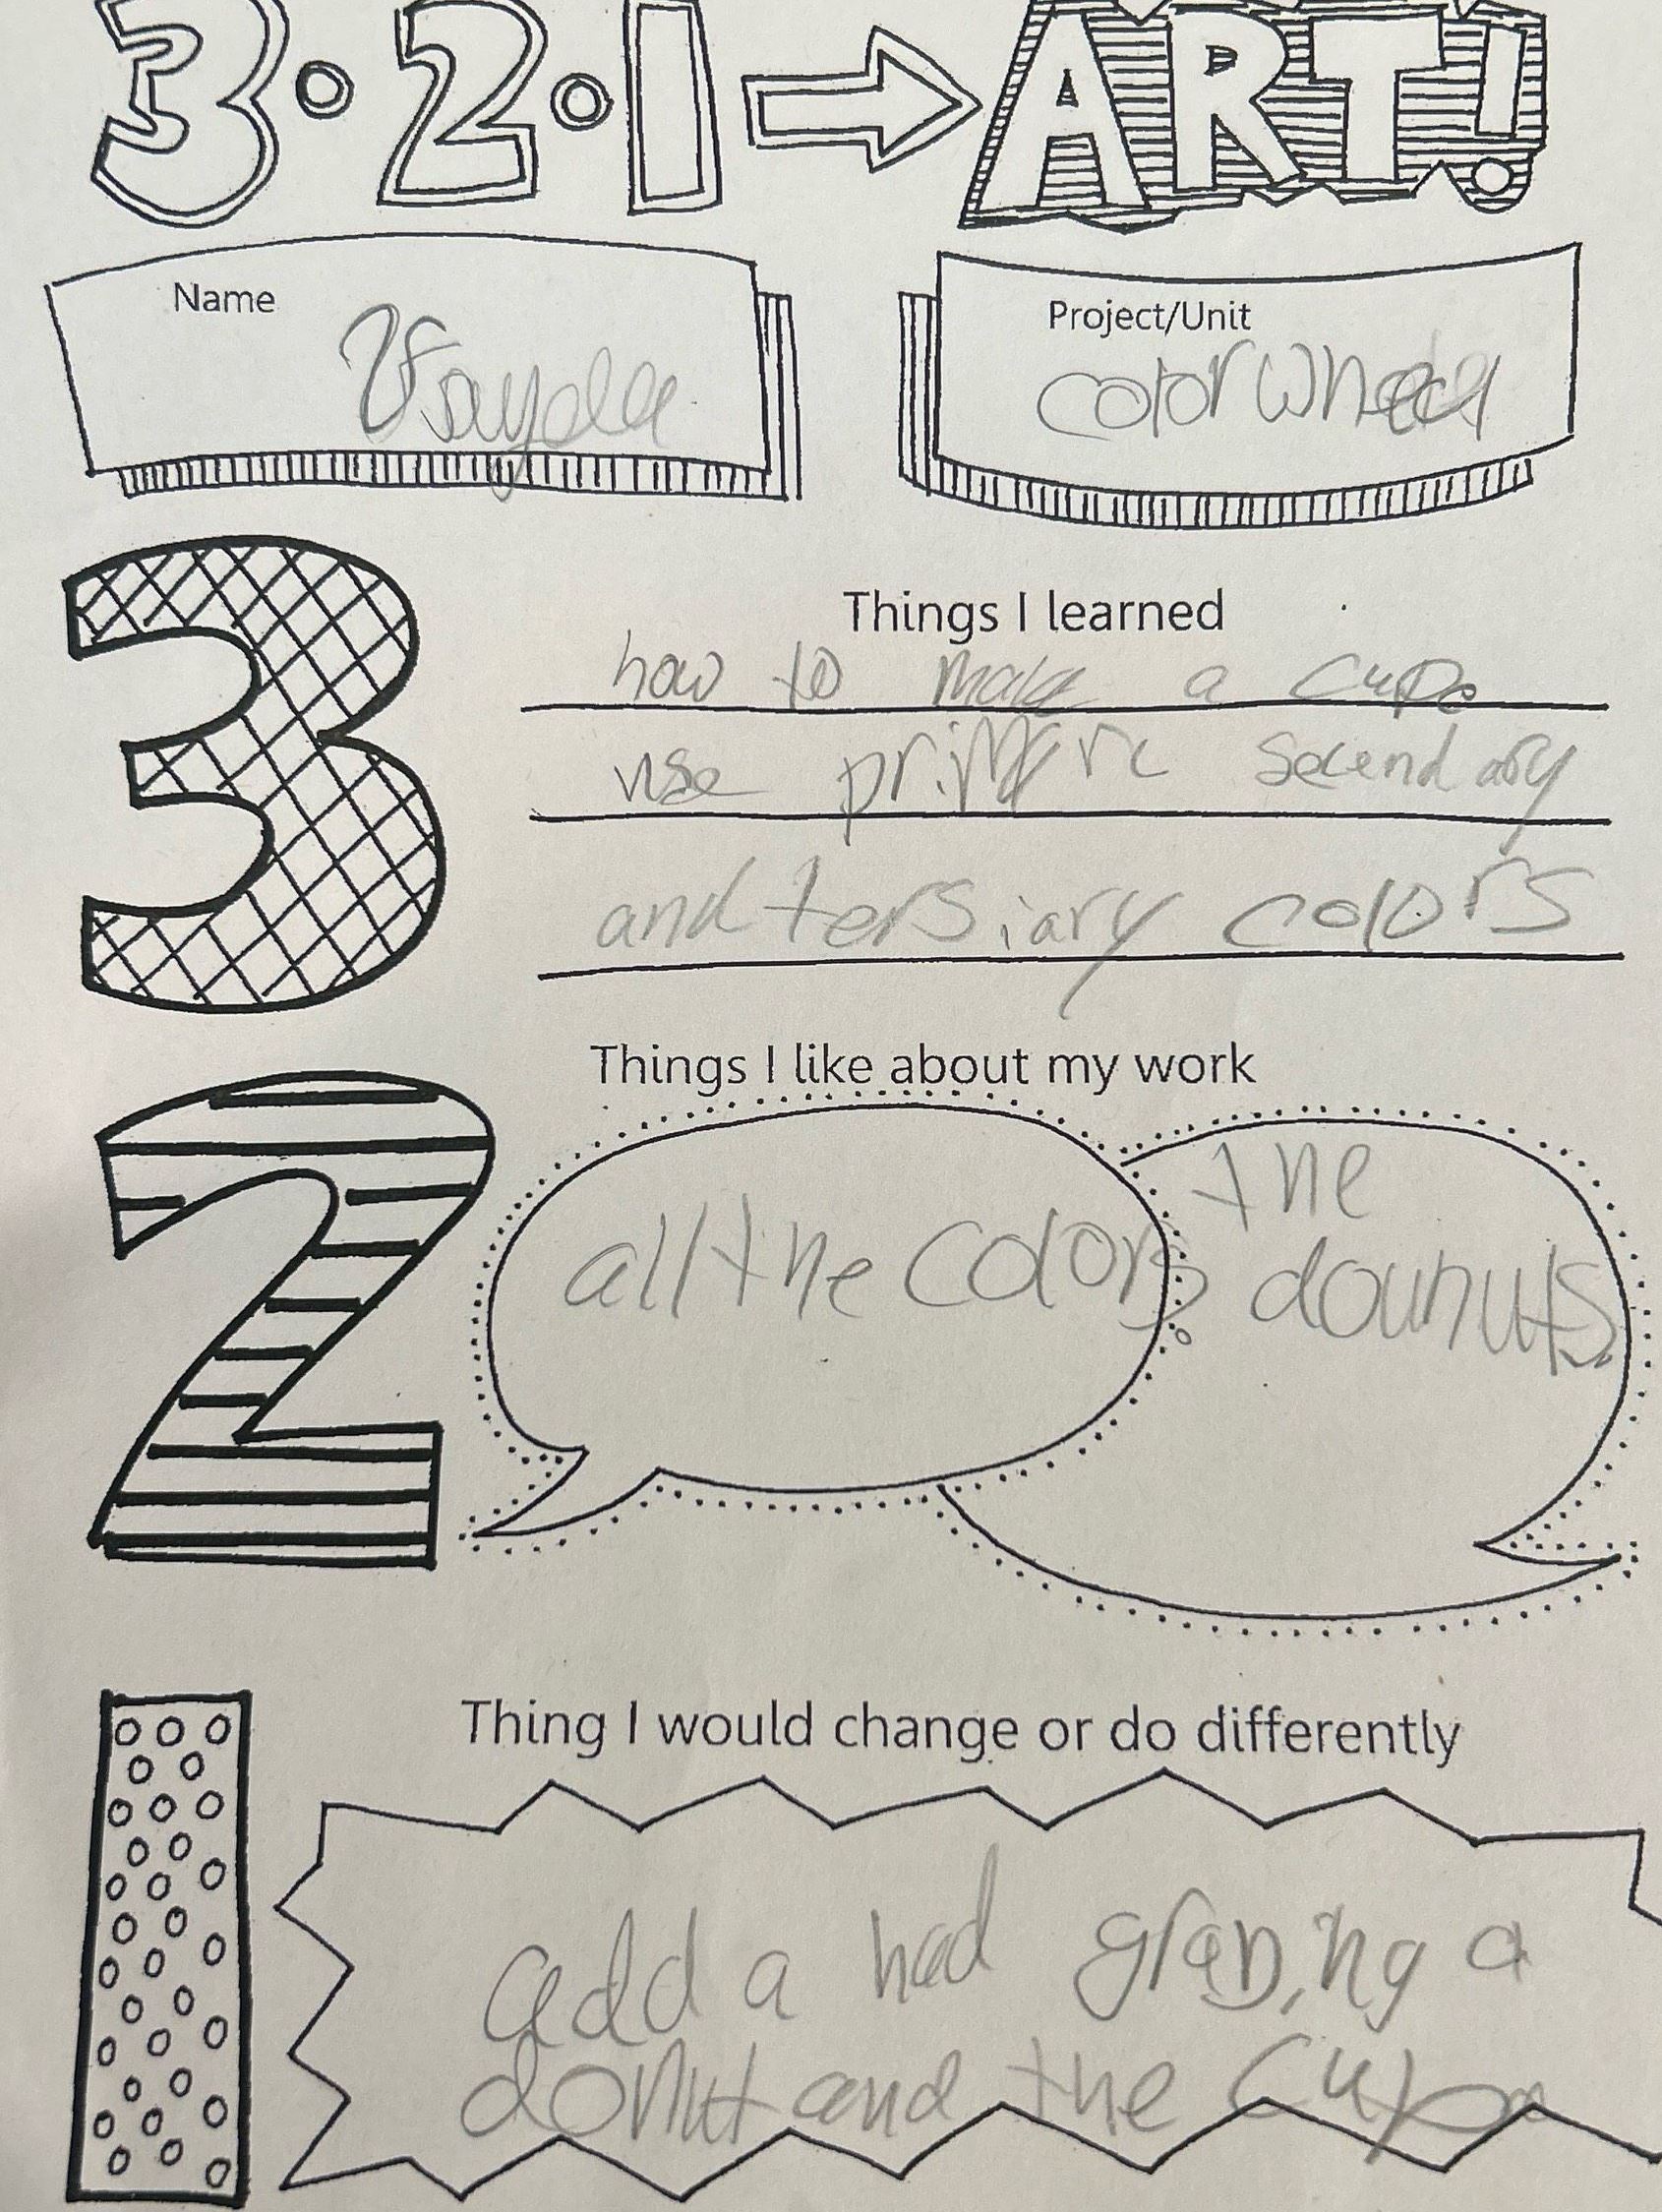 3·2·1 → ART!
Name
Project/Unit
color wheel
Things I learned
how to make a cupe
use primare secendary
and tersiary colors
Things I like about my work
all the colors.
the
dounuts.
Thing I would change or do differently
add a had grabing a
donut and the cup